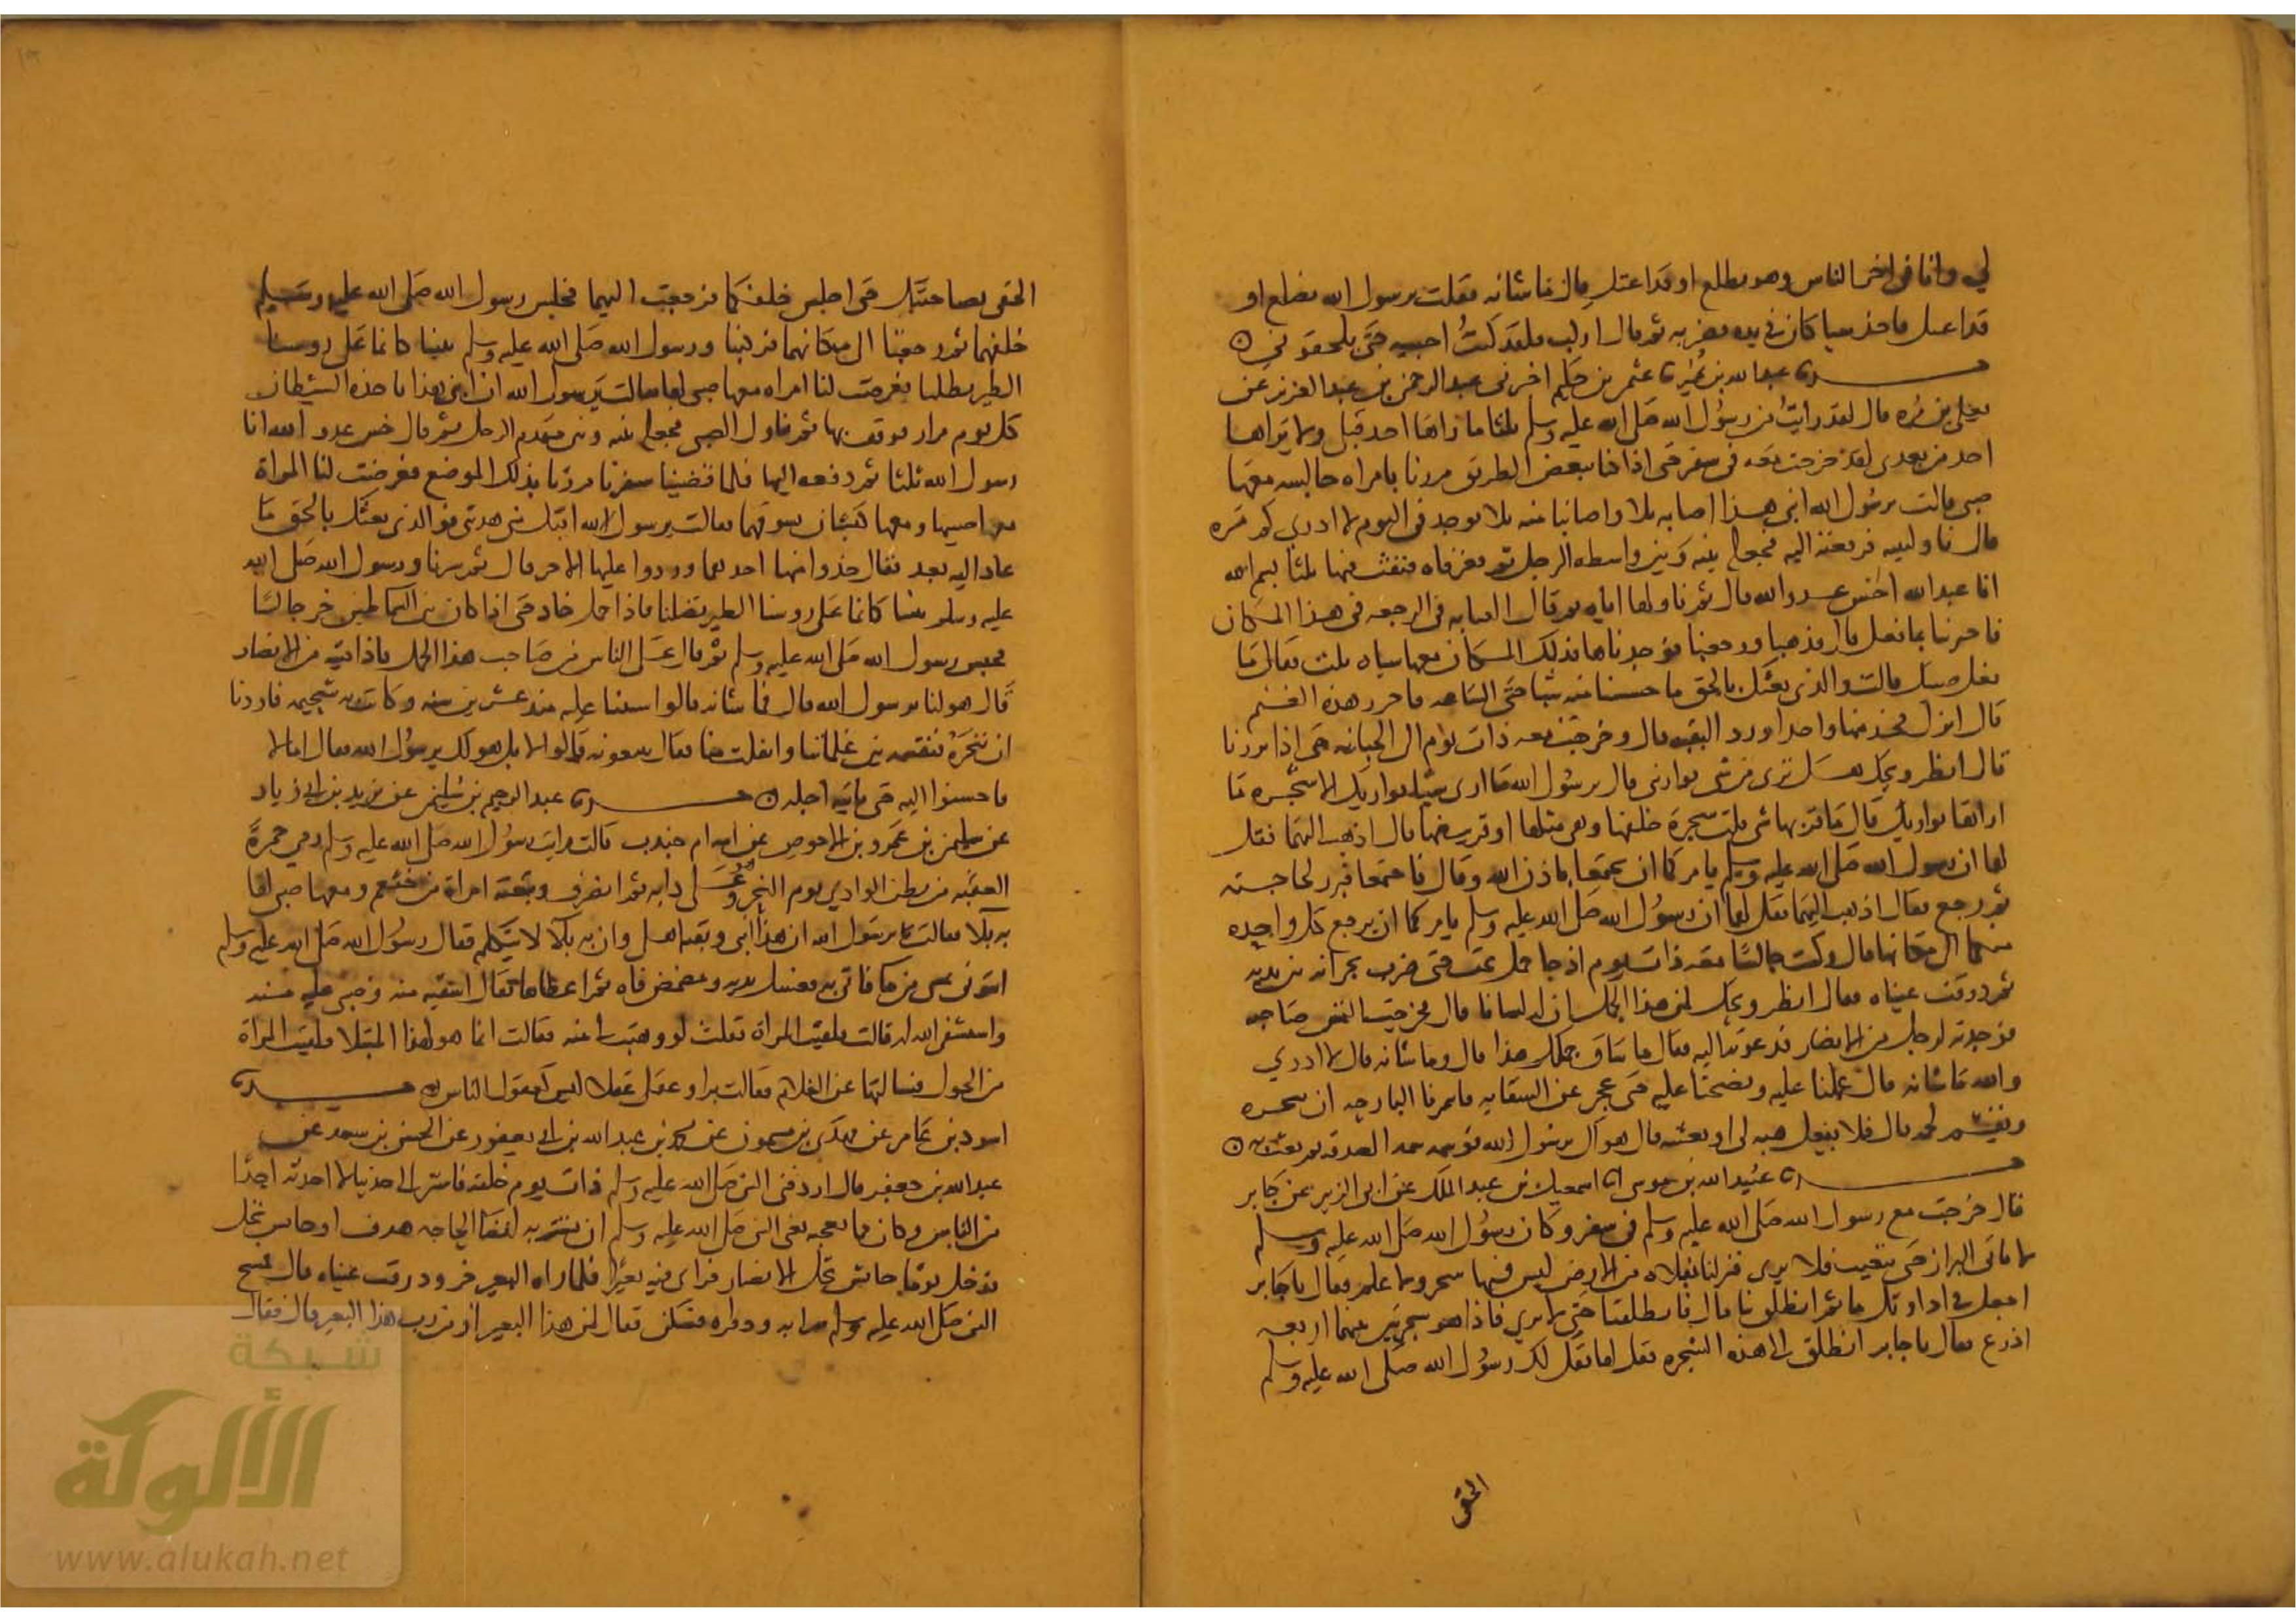 لي وانا في اخر الناس وهو يطلع او قد اعتل قال ما شانه فقلت يرسول الله يضلع او
قد اعتل فاخذ شيا كان في يده فضربه ثم قال اركب فلقد كنت احبسه حتى يلحقوني
عبد الله بن نمير ثنا عثمن بن حكيم اخبرني عبد الرحمن بن عبد العزيز عن
يعلى بن مره قال لقد رايت من رسول الله صلى الله عليه وسلم ثلثا ما راها احد قبلي ولا يراها
احد من بعدي لقد خرجت معه في سفر حتى اذا كنا ببعض الطريق مررنا بامراه جالسه معها
صبي قالت يرسول الله ابني هذا اصابه بلا واصابنا منه بلا يوخذ في اليوم لا ادري كم مره
قال ناولينيه فرفعته اليه فجعله بينه وبين واسطه الرحل ثم فغر فاه فنفث فيها ثلثا بسم الله
انا عبد الله اخس عدو الله قال ثم ناولها اياه ثم قال القينا به في الرجعه في هذا المكان
فاخبرينا بما فعل قال فذهبنا ورجعنا فوجدناها في ذلك المكان معها شياه ثلث فقال ما
فعل صبيك قالت والذي بعثك بالحق ما حسسنا منه شيا حتى الساعه فاجزر هذه الغنم
قال انزل فخذ منها واحدا ورد البقيه قال وخرجت معه ذات يوم الى الجبانه حتى اذا برزنا
قال انظر ويحك هل ترى من شي يواريني قال يرسول الله ما ارى شيا يواريك الا شجره ما
اراها تواريك قال ما قربها شي قلت شجره خلفها وهي مثلها او قريب منها قال اذهب اليهما فقل
لهما ان رسول الله صلى الله عليه وسلم يامركما ان تجتمعا باذن الله وقال فاجتمعا فبرز لحاجته
ثم رجع فقال اذهب اليهما فقل لهما ان رسول الله صلى الله عليه وسلم يامركما ان يرجع كل واحده
منكما الى مكانها قال وكنت جالسا معه ذات يوم اذ جا جمل يخب حتى ضرب بجرانه بين يديه
ثم ذرفت عيناه فقال انظر ويحك لمن هذا الجمل ان له لشانا قال فخرجت التمس صاحبه
فوجدته لرجل من الانصار فدعوته اليه فقال ما شان جملك هذا قال وما شانه قال لا ادري
والله ما شانه قال عملنا عليه ونضحنا عليه حتى عجز عن السقايه فايتمرنا البارحه ان ننحره
ونقسم لحمه قال فلا تفعل هبه لي او بعنيه قال هو لك يرسول الله فوسمه سمه الصدقه ثم بعث به
عبيد الله بن موسى انا اسمعيل بن عبد الملك عن ابي الزبير عن جابر
قال خرجت مع رسول الله صلى الله عليه وسلم في سفر وكان رسول الله صلى الله عليه وسلم
لا ياتي البراز حتى يتغيب فلا يرى فنزلنا بفلاه من الارض ليس فيها شجر ولا علم فقال يا جابر
اجعل في اداوتك ما ثم انطلق بنا قال فانطلقنا حتى لا نرى فاذا هو بشجرتين بينهما اربعه
اذرع فقال يا جابر انطلق الى هذه الشجره فقل لها يقل لك رسول الله صلى الله عليه وسلم
الحقي
الحقي بصاحبتك حتى اجلس خلفكما فرجعت اليهما فجلس رسول الله صلى الله عليه وسلم
خلفهما ثم رجعتا الى مكانهما فركبنا ورسول الله صلى الله عليه وسلم بيننا كانما على روسنا
الطير تظلنا فعرضت لنا امراه معها صبي لها فقالت يرسول الله ان ابني هذا ياخذه الشيطان
كل يوم مرار فوقف بها ثم تناول الصبي فجعله بينه وبين مقدم الرحل ثم قال اخس عدو الله انا
رسول الله ثلثا ثم دفعه اليها فلما قضينا سفرنا مررنا بذلك الموضع فعرضت لنا المراة
معها صبيها ومعها كبشان تسوقهما فقالت يرسول الله اقبل مني هديتي فوالذي بعثك بالحق ما
عاد اليه بعد فقال خذوا منها احدهما وردوا عليها الاخر قال ثم سرنا ورسول الله صلى الله
عليه وسلم بيننا كانما على روسنا الطير تظلنا فاذا جمل ناد حتى اذا كان بين السماطين خر جالسا
فحبس رسول الله صلى الله عليه وسلم ثم قال علي الناس من صاحب هذا الجمل فاذا فتية من الانصار
قال هو لنا يرسول الله قال فما شانه قالوا استنينا عليه منذ عشرين سنه وكانت به شحيمه فاردنا
ان ننحره فنقسمه بين غلماننا وانفلت منا فقال تبيعونه قالوا لا بل هو لك يرسول الله فقال اما لا
فاحسنوا اليه حتى ياتيه اجله عبد الرحيم بن سليمن عن يزيد بن ابي زياد
عن سليمن بن عمرو بن الاحوص عن امه ام جندب قالت رايت رسول الله صلى الله عليه وسلم رمى جمرة
العقبه من بطن الوادي يوم النحر وهو على دابه ثم انصرف وتبعته امراة من خثعم ومعها صبي لها
به بلا فقالت يرسول الله ان هذا ابني وبقية اهلي وان به بلا لا يتكلم فقال رسول الله صلى الله عليه وسلم
ايتوني بشي من ما فاتي به فغسل يديه ومضمض فاه ثم اعطاها فقال اسقيه منه وصبي عليه منه
واستشفي الله له قالت فلقيت المراة فقلت لو وهبت لي منه فقالت انما هو لهذا المبتلا فلقيت المراة
من الحول فسالتها عن الغلام فقالت برا وعقل عقلا ليس كعقول الناس
اسود بن عامر عن مهدي بن ميمون عن محمد بن عبد الله بن ابي يعقوب عن الحسن بن سعد عن
عبد الله بن جعفر قال اردفني النبي صلى الله عليه وسلم ذات يوم خلفه فاسر الى حديثا لا احدثه احدا
من الناس وكان مما يعجبه يعني النبي صلى الله عليه وسلم ان يستتر به لقضا الحاجه هدف او حايش نخل
فدخل يوما حايش نخل الانصار فراى فيه بعيرا فلما راه البعير خر وذرفت عيناه قال فمسح
النبي صلى الله عليه وسلم سراته وذفراه فسكن فقال لمن هذا البعير او من رب هذا البعير قال فقال
شبكة
الألوكة
www.alukah.net